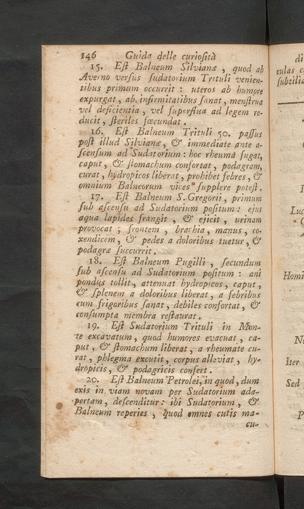 146 Guida delle curiosità
15. Est Balneum Silvianæ, quod ab
Averno versus sudatorium Trituli venien-
tibus primum occurrit: uteros ab humore
expurgat, ab infirmitatibus sanat, menstrua
vel deficientia, vel superflua ad legem re-
ducit, steriles fæcundat.
16. Est Balneum Trituli 50. passus
post illud Silvianæ, & immediate ante a-
scensum ad Sudatorium: hoc rheuma fugat,
caput, & stomachum confortat, podagram
curat, hydropicos liberat, prohibet febres, &
omnium Balneorum vices supplere potest.
17. Est Balneum S. Gregorii, primum
sub ascensu ad Sudatorium positum: ejus
aqua lapides frangit, & ejicit, urinam
provocat; frontem, brachia, manus, co-
xendicem, & pedes a doloribus tuetur, &
podagræ succurrit.
18. Est Balneum Pugilli, secundum
sub ascensu ad Sudatorium positum: ani
pondus tollit, attenuat hydropicos, caput,
& splenem a doloribus liberat, a febribus
cum frigoribus sanat, debiles confortat, &
consumpta membra restaurat.
19. Est Sudatorium Trituli in Mon-
te excavatum, quod humores evacuat, ca-
put, & stomachum liberat, a rheumate cu-
rat, phlegma excutit, corpus alleviat, hy-
dropicis, & podagricis confert.
20. Est Balneum Petrolei, in quod, dum
exis in viam novam per Sudatorium ada-
pertam, descenditur: ibi Sudatorium, &
Balneum reperies, quod omnes cutis ma-
cu-
di
culas c
subtilia
Luc
Homi
N
Iter
Sed
P